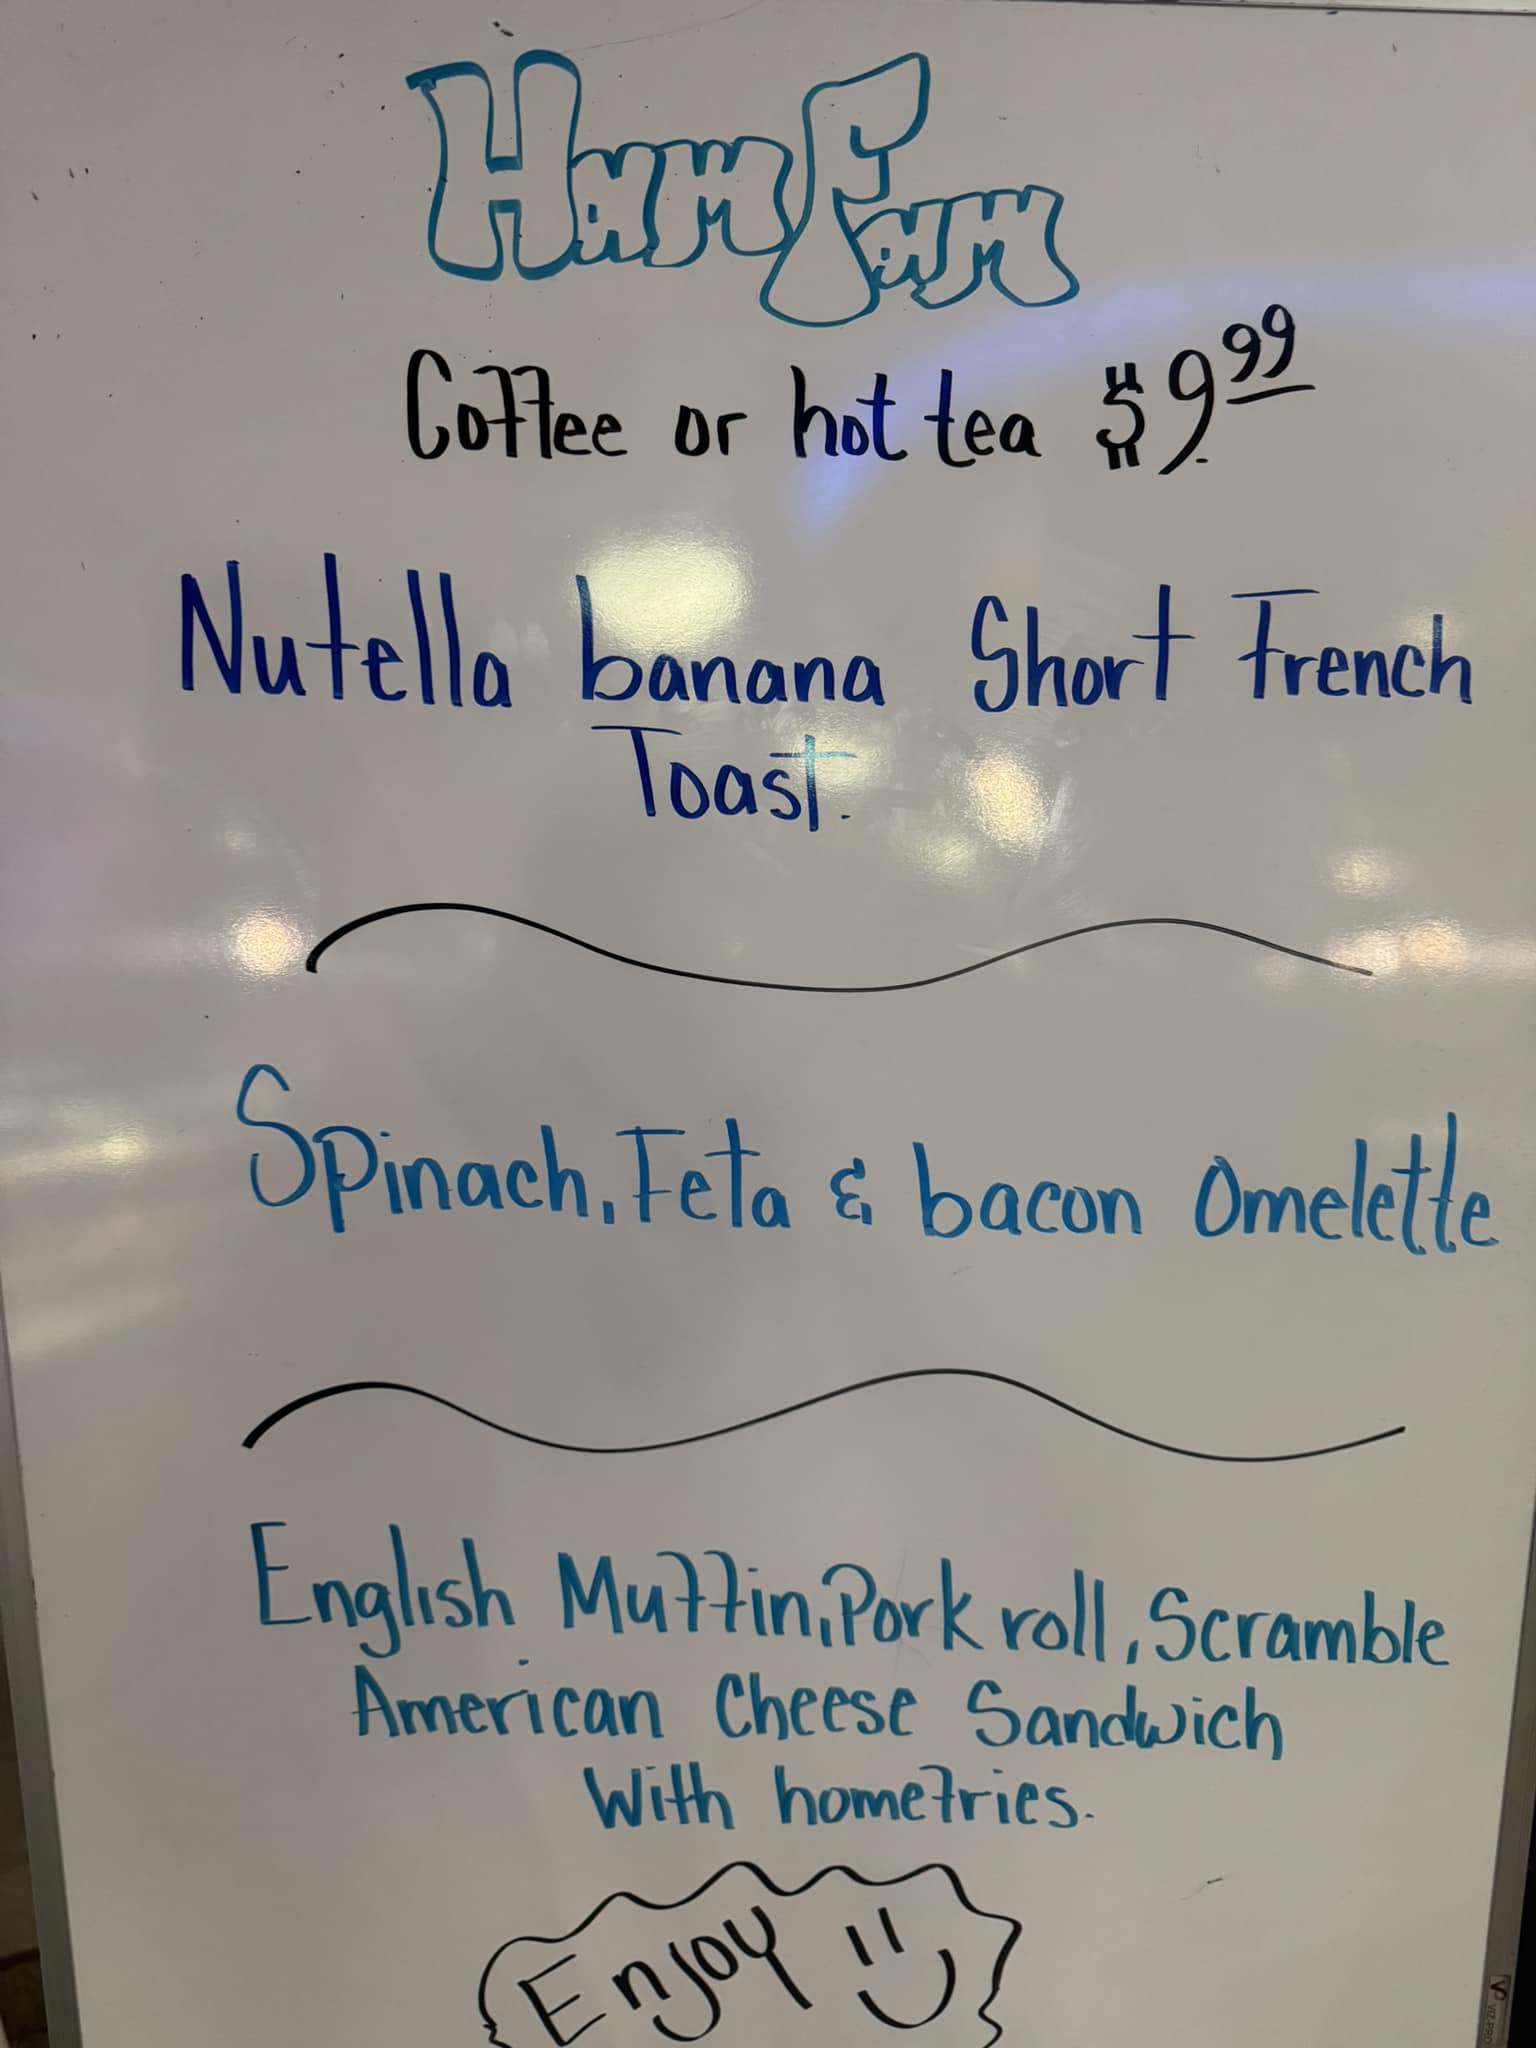 Ham Fam
Coffee or hot tea $9.99
Nutella banana Short French
Toast.
Spinach, Feta & bacon Omelette
English Muffin, Pork roll, Scramble
American Cheese Sandwich
With homefries.
Enjoy
VIZ-PRO